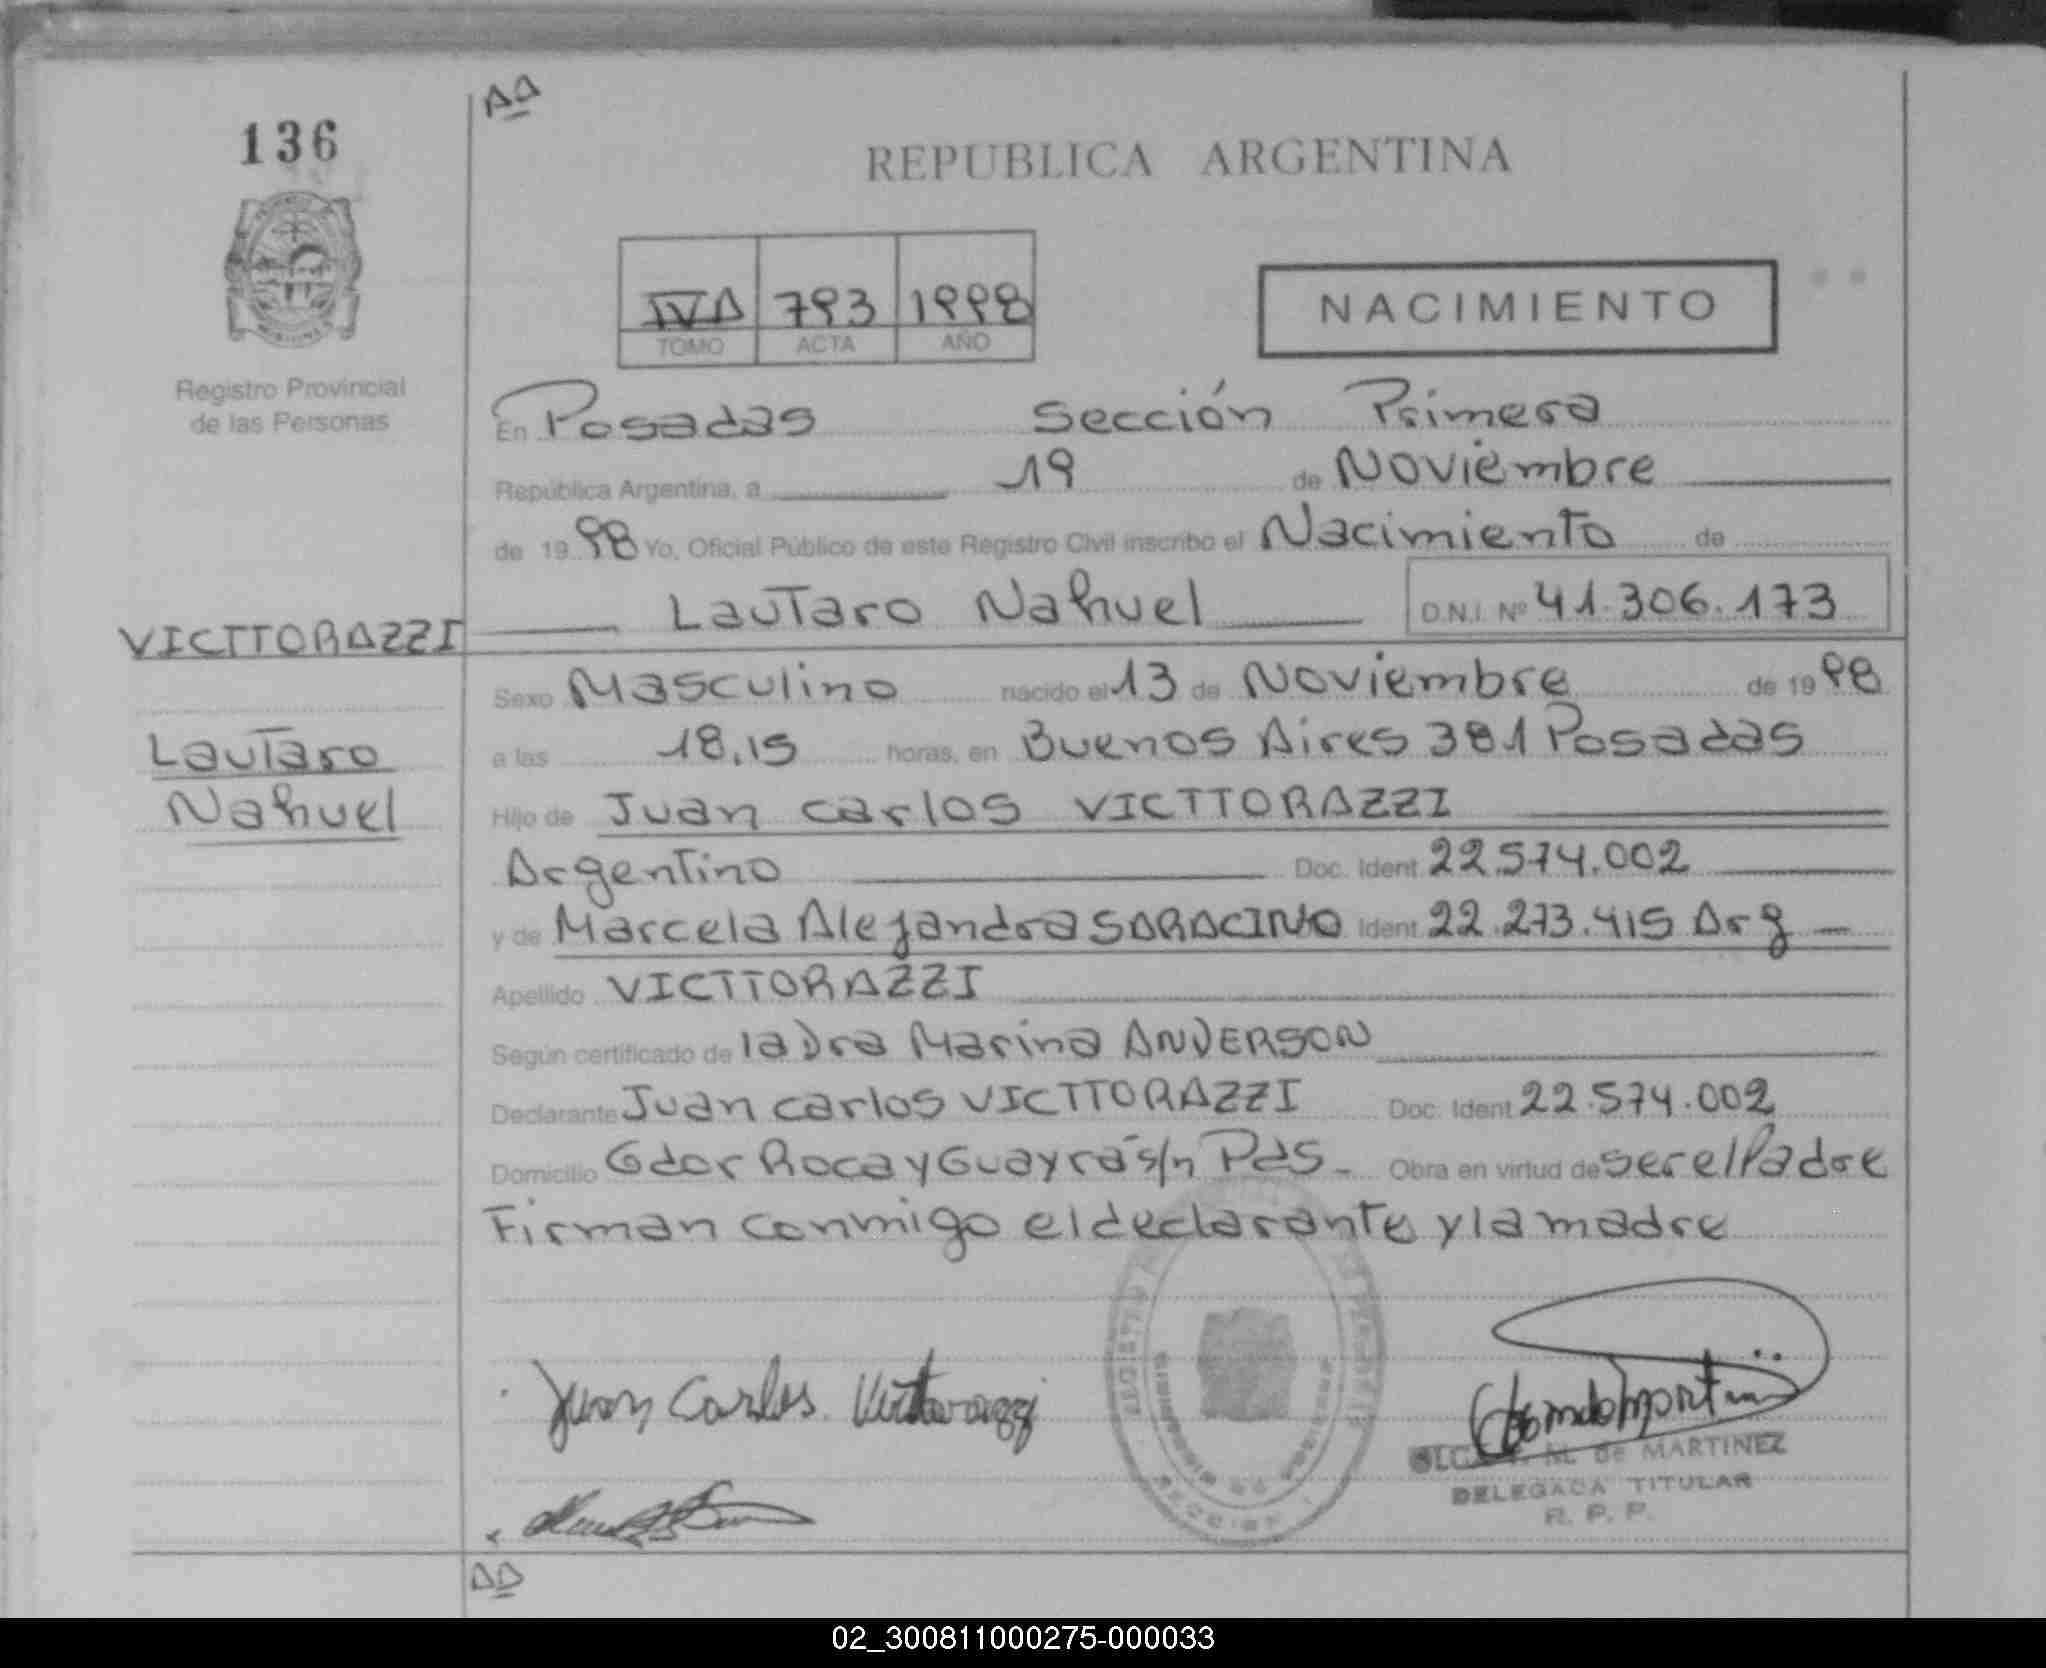 AA
136
REPUBLICA ARGENTINA
IVA 793 1998
TOMO ACTA AÑO
NACIMIENTO
Registro Provincial
de las Personas
En Posadas Sección Primera
República Argentina, a 19 de Noviembre
de 1998 Yo, Oficial Público de este Registro Civil inscribo el Nacimiento de
Lautaro Nahuel D.N.I. Nº 41.306.173
VICTTORAZZI
Lautaro
Nahuel
Sexo Masculino nacido el 13 de Noviembre de 1998
a las 18,15 horas, en Buenos Aires 381 Posadas
Hijo de Juan Carlos VICTTORAZZI
Argentino Doc. Ident. 22.574.002
y de Marcela Alejandra SARACINO Ident. 22.273.415 Arg
Apellido VICTTORAZZI
Según certificado de la Dra Marina ANDERSON
Declarante Juan Carlos VICTTORAZZI Doc. Ident. 22.574.002
Domicilio Gdor Roca y Guayrá s/n Pds- Obra en virtud de ser el Padre
Firman conmigo el declarante y la madre
Juan Carlos Victtorazzi
DE MARTINEZ
DELEGADA TITULAR
R. P. P.
AA
02_300811000275-000033